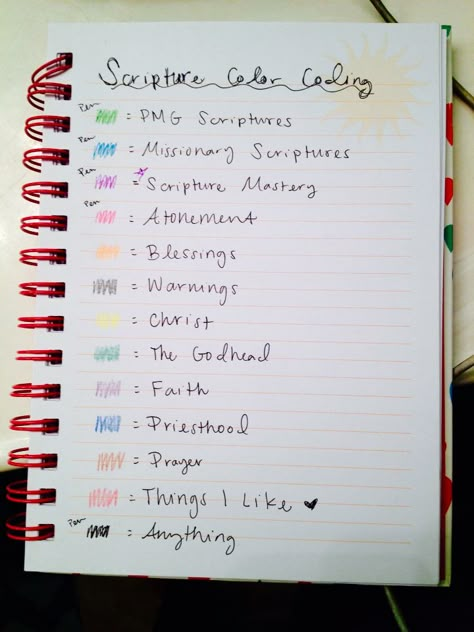 Scripture Color Coding
Pen = PMG Scriptures
Pen = Missionary Scriptures
Pen = Scripture Mastery
Pen = Atonement
= Blessings
= Warnings
= Christ
= The Godhead
= Faith
= Priesthood
= Prayer
= Things I Like ♥
Pen = Anything